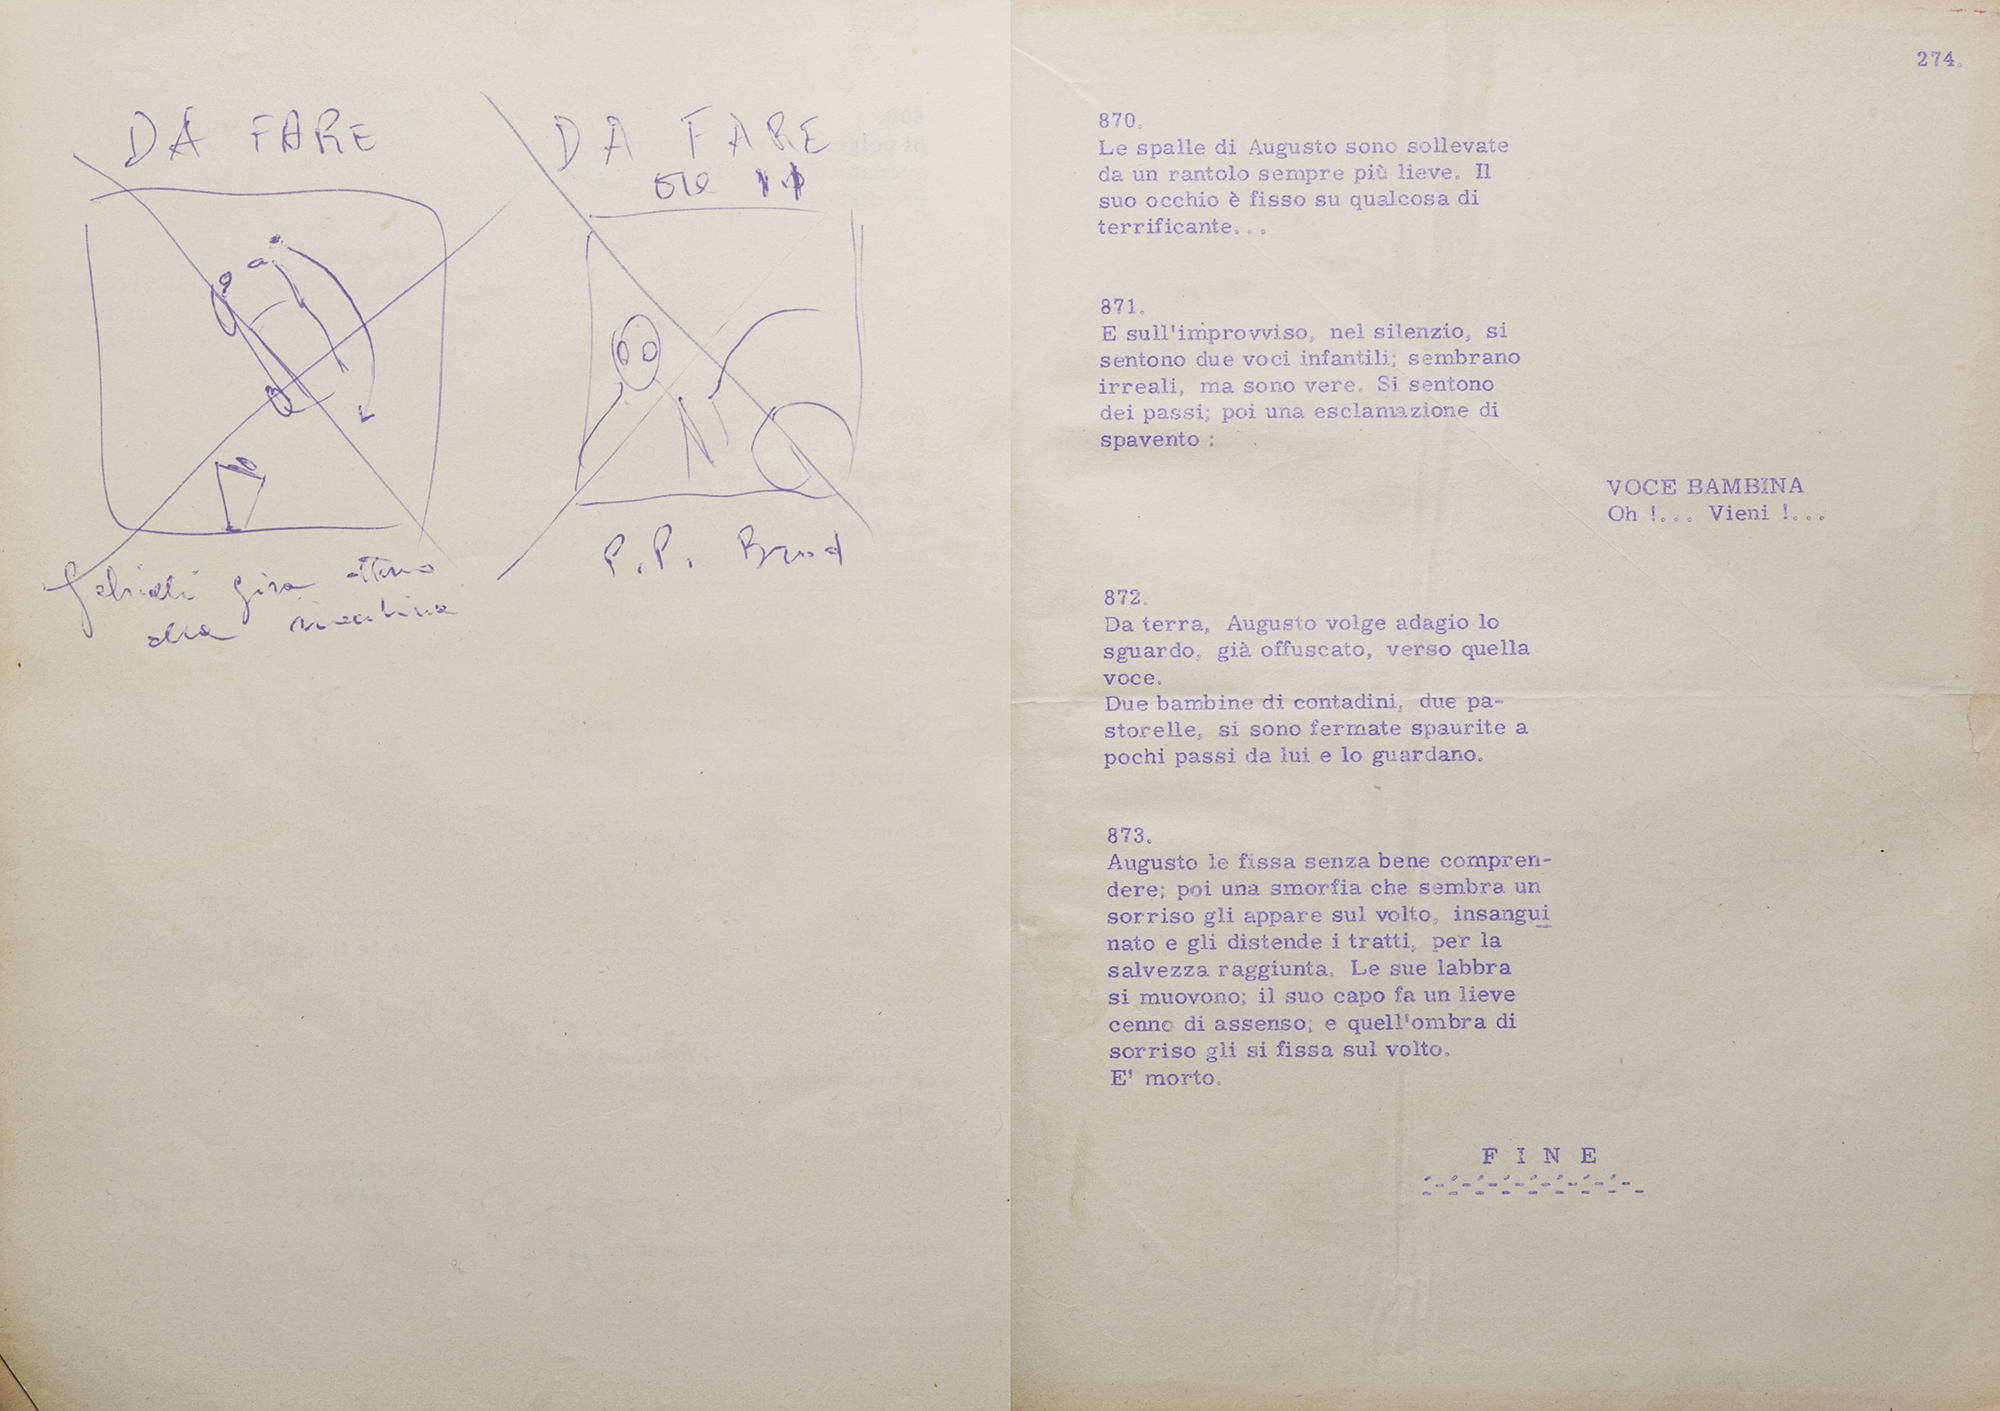 DA FARE
DA FARE
ore 11
P.P. Brod
gira attorno
alla macchina
274.
870.
Le spalle di Augusto sono sollevate
da un rantolo sempre più lieve. Il
suo occhio è fisso su qualcosa di
terrificante...
871.
E sull'improvviso, nel silenzio, si
sentono due voci infantili; sembrano
irreali, ma sono vere. Si sentono
dei passi; poi una esclamazione di
spavento :
VOCE BAMBINA
Oh !... Vieni !...
872.
Da terra, Augusto volge adagio lo
sguardo, già offuscato, verso quella
voce.
Due bambine di contadini, due pa-
storelle, si sono fermate spaurite a
pochi passi da lui e lo guardano.
873.
Augusto le fissa senza bene compren-
dere; poi una smorfia che sembra un
sorriso gli appare sul volto, insangui
nato e gli distende i tratti, per la
salvezza raggiunta. Le sue labbra
si muovono; il suo capo fa un lieve
cenno di assenso; e quell'ombra di
sorriso gli si fissa sul volto.
E' morto.
F I N E